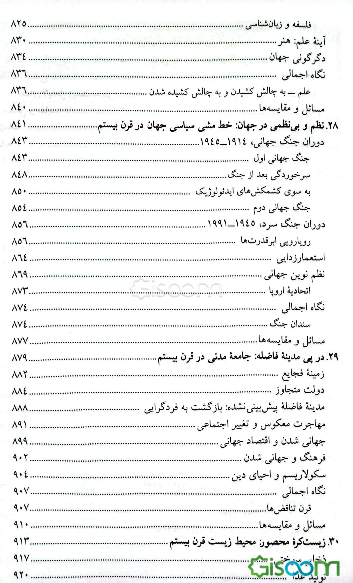 فلسفه و زبان‌شناسی ۸۲۵
آینهٔ علم: هنر ۸۳۰
دگرگونی جهان ۸۳۴
نگاه اجمالی ۸۳۶
علم ــ به چالش کشیدن و به چالش کشیده شدن ۸۳۶
مسائل و مقایسه‌ها ۸۴۰
۲۸. نظم و بی‌نظمی در جهان: خط مشی سیاسی جهان در قرن بیستم ۸۴۱
دوران جنگ جهانی، ۱۹۱۴ــ۱۹۴۵ ۸۴۳
جنگ جهانی اول ۸۴۳
سرخوردگی بعد از جنگ ۸۴۸
به سوی کشمکش‌های ایدئولوژیک ۸۵۰
جنگ جهانی دوم ۸۵۴
دوران جنگ سرد، ۱۹۴۵ــ۱۹۹۱ ۸۵۶
رویارویی ابرقدرت‌ها ۸۵۶
استعمارزدایی ۸۶۴
نظم نوین جهانی ۸۶۹
اتحادیهٔ اروپا ۸۷۳
نگاه اجمالی ۸۷۴
سندان جنگ ۸۷۴
مسائل و مقایسه‌ها ۸۷۷
۲۹. در پی مدینهٔ فاضله: جامعهٔ مدنی در قرن بیستم ۸۷۹
زمینهٔ فجایع ۸۸۲
دولت متجاوز ۸۸۴
مدینهٔ فاضلهٔ پیش‌بینی‌نشده: بازگشت به فردگرایی ۸۸۸
مهاجرت معکوس و تغییر اجتماعی ۸۹۱
جهانی شدن و اقتصاد جهانی ۸۹۹
فرهنگ و جهانی شدن ۹۰۲
سکولاریسم و احیای دین ۹۰۴
نگاه اجمالی ۹۰۷
قرن تناقض‌ها ۹۰۷
مسائل و مقایسه‌ها ۹۱۰
۳۰. زیست‌کرهٔ محصور: محیط زیست قرن بیستم ۹۱۳
۹۱۷
تولید غذا ۹۲۰
Gisoom